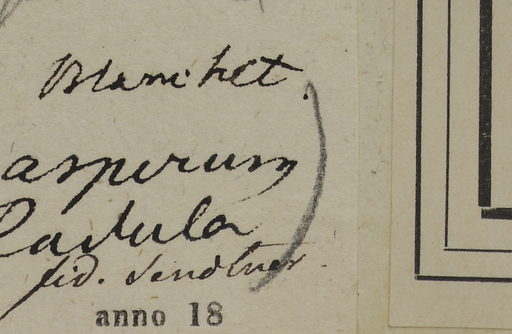 Blanchet.
asperum
Radula
fid. Sendtner.
anno 18